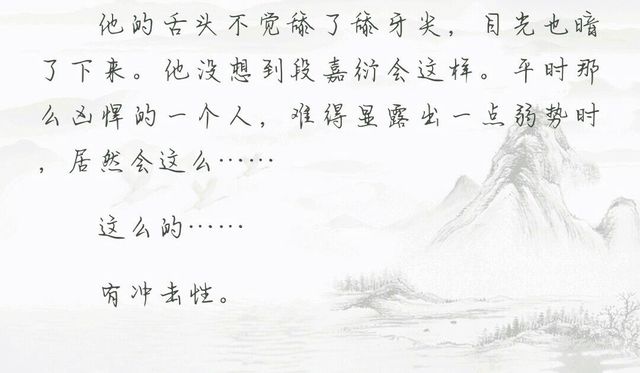 他的舌头不觉舔了舔牙尖，目光也暗
了下来。他没想到段嘉衍会这样。平时那
么凶悍的一个人，难得显露出一点弱势时
，居然会这么……
这么的……
有冲击性。